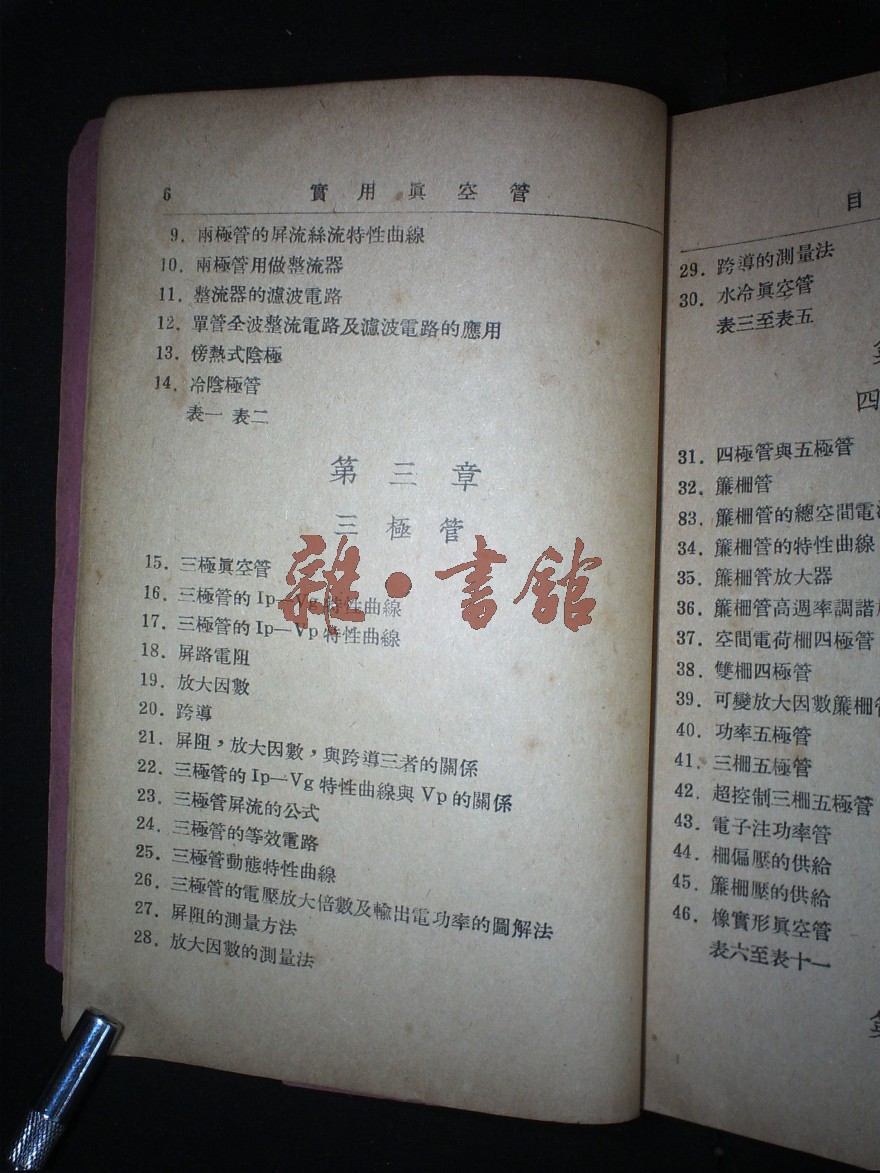 6 實用眞空管
9. 兩極管的屏流絲流特性曲線
10. 兩極管用做整流器
11. 整流器的濾波電路
12. 單管全波整流電路及濾波電路的應用
13. 傍熱式陰極
14. 冷陰極管
表一 表二
第三章
三極管
15. 三極眞空管
16. 三極管的Ip—Vg特性曲線
17. 三極管的Ip—Vp特性曲線
18. 屏路電阻
19. 放大因數
20. 跨導
21. 屏阻，放大因數，與跨導三者的關係
22. 三極管的Ip—Vg特性曲線與Vp的關係
23. 三極管屏流的公式
24. 三極管的等效電路
25. 三極管動態特性曲線
26. 三極管的電壓放大倍數及輸出電功率的圖解法
27. 屏阻的測量方法
28. 放大因數的測量法
雜·書館
目
29. 跨導的測量法
30. 水冷眞空管
表三至表五
四
31. 四極管與五極管
32. 簾柵管
83. 簾柵管的總空間電
34. 簾柵管的特性曲線
35. 簾柵管放大器
36. 簾柵管高週率調諧
37. 空間電荷柵四極管
38. 雙柵四極管
39. 可變放大因數簾柵管
40. 功率五極管
41. 三柵五極管
42. 超控制三柵五極管
43. 電子注功率管
44. 柵偏壓的供給
45. 簾柵壓的供給
46. 橡實形眞空管
表六至表十一